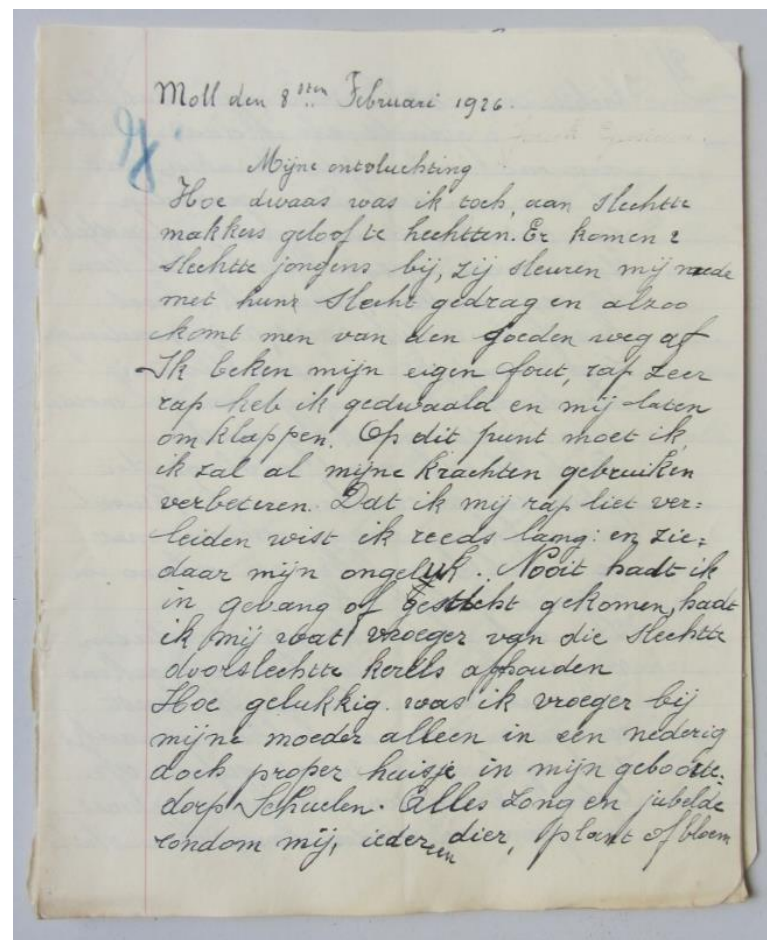 Moll den 8sten Februari 1926.
Mijne ontvluchting
Hoe dwaas was ik toch, aan slechtte
makkers geloof te hechtten. Er komen 2
slechtte jongens bij, zij sleuren mij mede
met hunr slecht gedrag en alzoo
komt men van den goeden weg af
Ik beken mijn eigen fout, rap zeer
rap heb ik gedwaald en mij laten
omklappen. Op dit punt moet ik,
ik zal al mijne krachten gebruiken
verbeteren. Dat ik mij rap liet ver=
leiden wist ik reeds lang: en zie=
daar mijn ongeluk. Nooit hadt ik
in gevang of gesticht gekomen, hadt
ik mij wat vroeger van die slechtte
doorslechtte kerels afhouden
Hoe gelukkig was ik vroeger bij
mijne moeder alleen in een nederig
doch proper huisje in mijn geboorte=
dorp Schuelen. Alles zong en jubelde
rondom mij, iedereen dier, plant of bloem